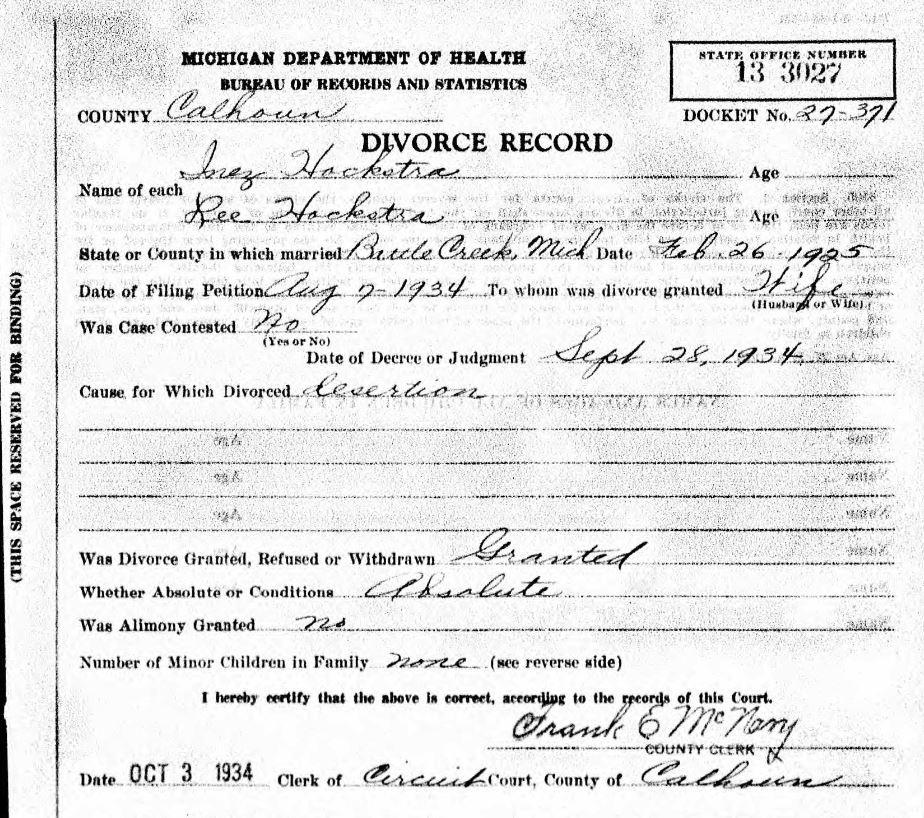 MICHIGAN DEPARTMENT OF HEALTH
BUREAU OF RECORDS AND STATISTICS
STATE OFFICE NUMBER
13 3027
COUNTY Calhoun
DOCKET No. 27-371
DIVORCE RECORD
Inez Hockstra Age
Name of each
Lee Hockstra Age
State or County in which married Battle Creek, Mich Date Feb. 26 - 1925
Date of Filing Petition Aug 7 - 1934 To whom was divorce granted Wife
(Husband or Wife)
Was Case Contested No
(Yes or No)
Date of Decree or Judgment Sept 28, 1934
Cause for Which Divorced desertion
Was Divorce Granted, Refused or Withdrawn Granted
Whether Absolute or Conditions Absolute
Was Alimony Granted no
Number of Minor Children in Family none (see reverse side)
I hereby certify that the above is correct, according to the records of this Court.
Frank E McNary
COUNTY CLERK
Date OCT 3 1934 Clerk of Circuit Court, County of Calhoun
(THIS SPACE RESERVED FOR BINDING)